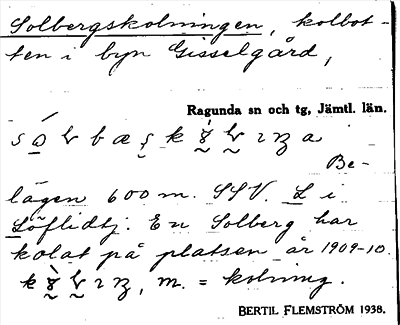 Solbergskolningen, kolbot-
ten i byn Gisselgård,
Ragunda sn och tg, Jämtl. län.
Be-
lägen 600 m. SSV. L i
Löflidtj. En Solberg har
kolat på platsen år 1909-10.
m. = kolning.
BERTIL FLEMSTRÖM 1938.